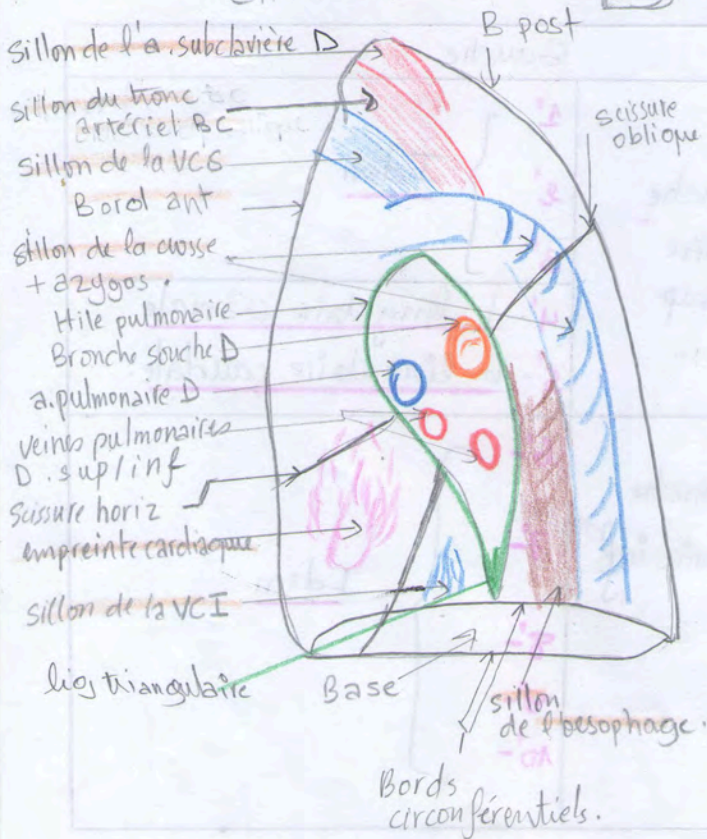 B post
Sillon de l'a. subclavière D
Sillon du tronc
artériel BC
scissure
oblique
Sillon de la VCS
Bord ant
sillon de la crosse
+ azygos.
Hile pulmonaire
Bronche souche D
a. pulmonaire D
veines pulmonaires
D. sup/inf
Scissure horiz
empreinte cardiaque
Sillon de la VCI
lig triangulaire
Base
sillon
de l'oesophage.
Bords
circonférentiels.